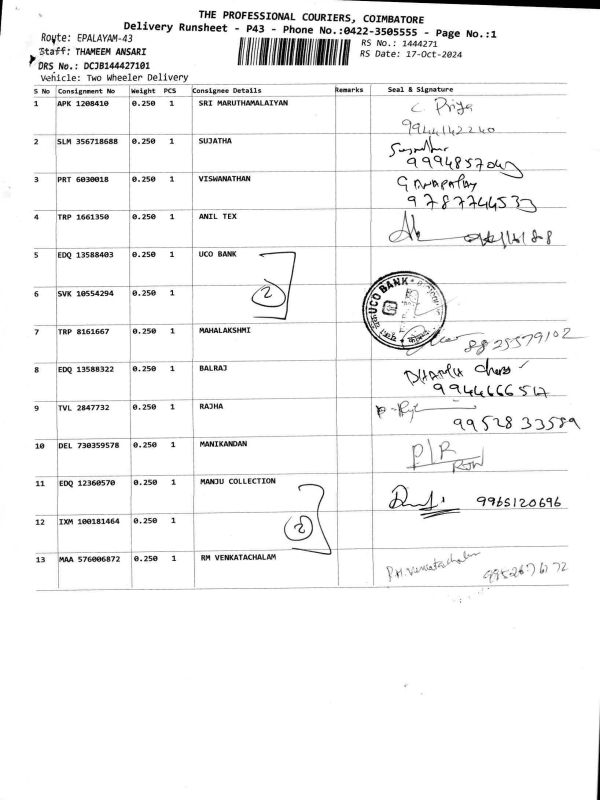 THE PROFESSIONAL COURIERS, COIMBATORE
Delivery Runsheet - P43 - Phone No.:0422-3505555 - Page No.:1
Route: EPALAYAM-43
RS No.: 1444271
Staff: THAMEEM ANSARI
RS Date: 17-Oct-2024
DRS No.: DCJB144427101
Vehicle: Two Wheeler Delivery
S No Consignment No Weight PCS Consignee Details Remarks Seal & Signature
1 APK 1208410 0.250 1 SRI MARUTHAMALAIYAN C. Priya
9944142240
2 SLM 356718688 0.250 1 SUJATHA
3 PRT 6030018 0.250 1 VISWANATHAN
9787744533
4 TRP 1661350 0.250 1 ANIL TEX
5 EDQ 13588403 0.250 1 UCO BANK
UCO BANK
6 SVK 10554294 0.250 1 2
7 TRP 8161667 0.250 1 MAHALAKSHMI 8825579102
8 EDQ 13588322 0.250 1 BALRAJ
9 TVL 2847732 0.250 1 RAJHA
9952833589
10 DEL 730359578 0.250 1 MANIKANDAN P/R
11 EDQ 12360570 0.250 1 MANJU COLLECTION 9965120696
12 IXM 100181464 0.250 1 2
13 MAA 576006872 0.250 1 RM VENKATACHALAM